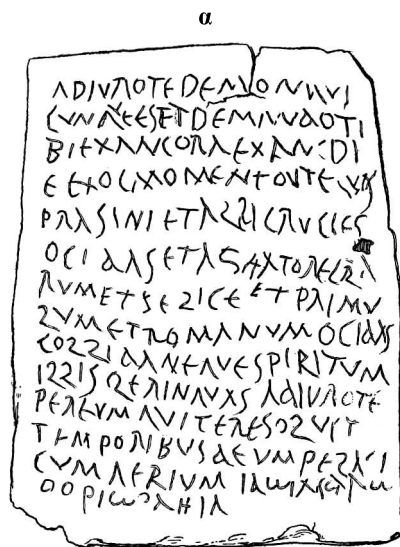 α
ADIVROTEDEMONQVI
CVNQVEESETDEMANDOTI
BIEXANCORAEXANCDI
EEXOCMOMENTOVTEQVS
PRASINIETALBICRVCIES
OCIDASETAGITATORECLA
RVMETFELICEETPRIMV
LVMETROMANVMOCIDAS
COLLIDASNEQVESPIRITVM
ILLISLERINQVAS ADIVROTE
PEREVMQVITERESOLVIT
TEMPORIBVSDEVMPELAGI
CVMAERIVM ΙΑω